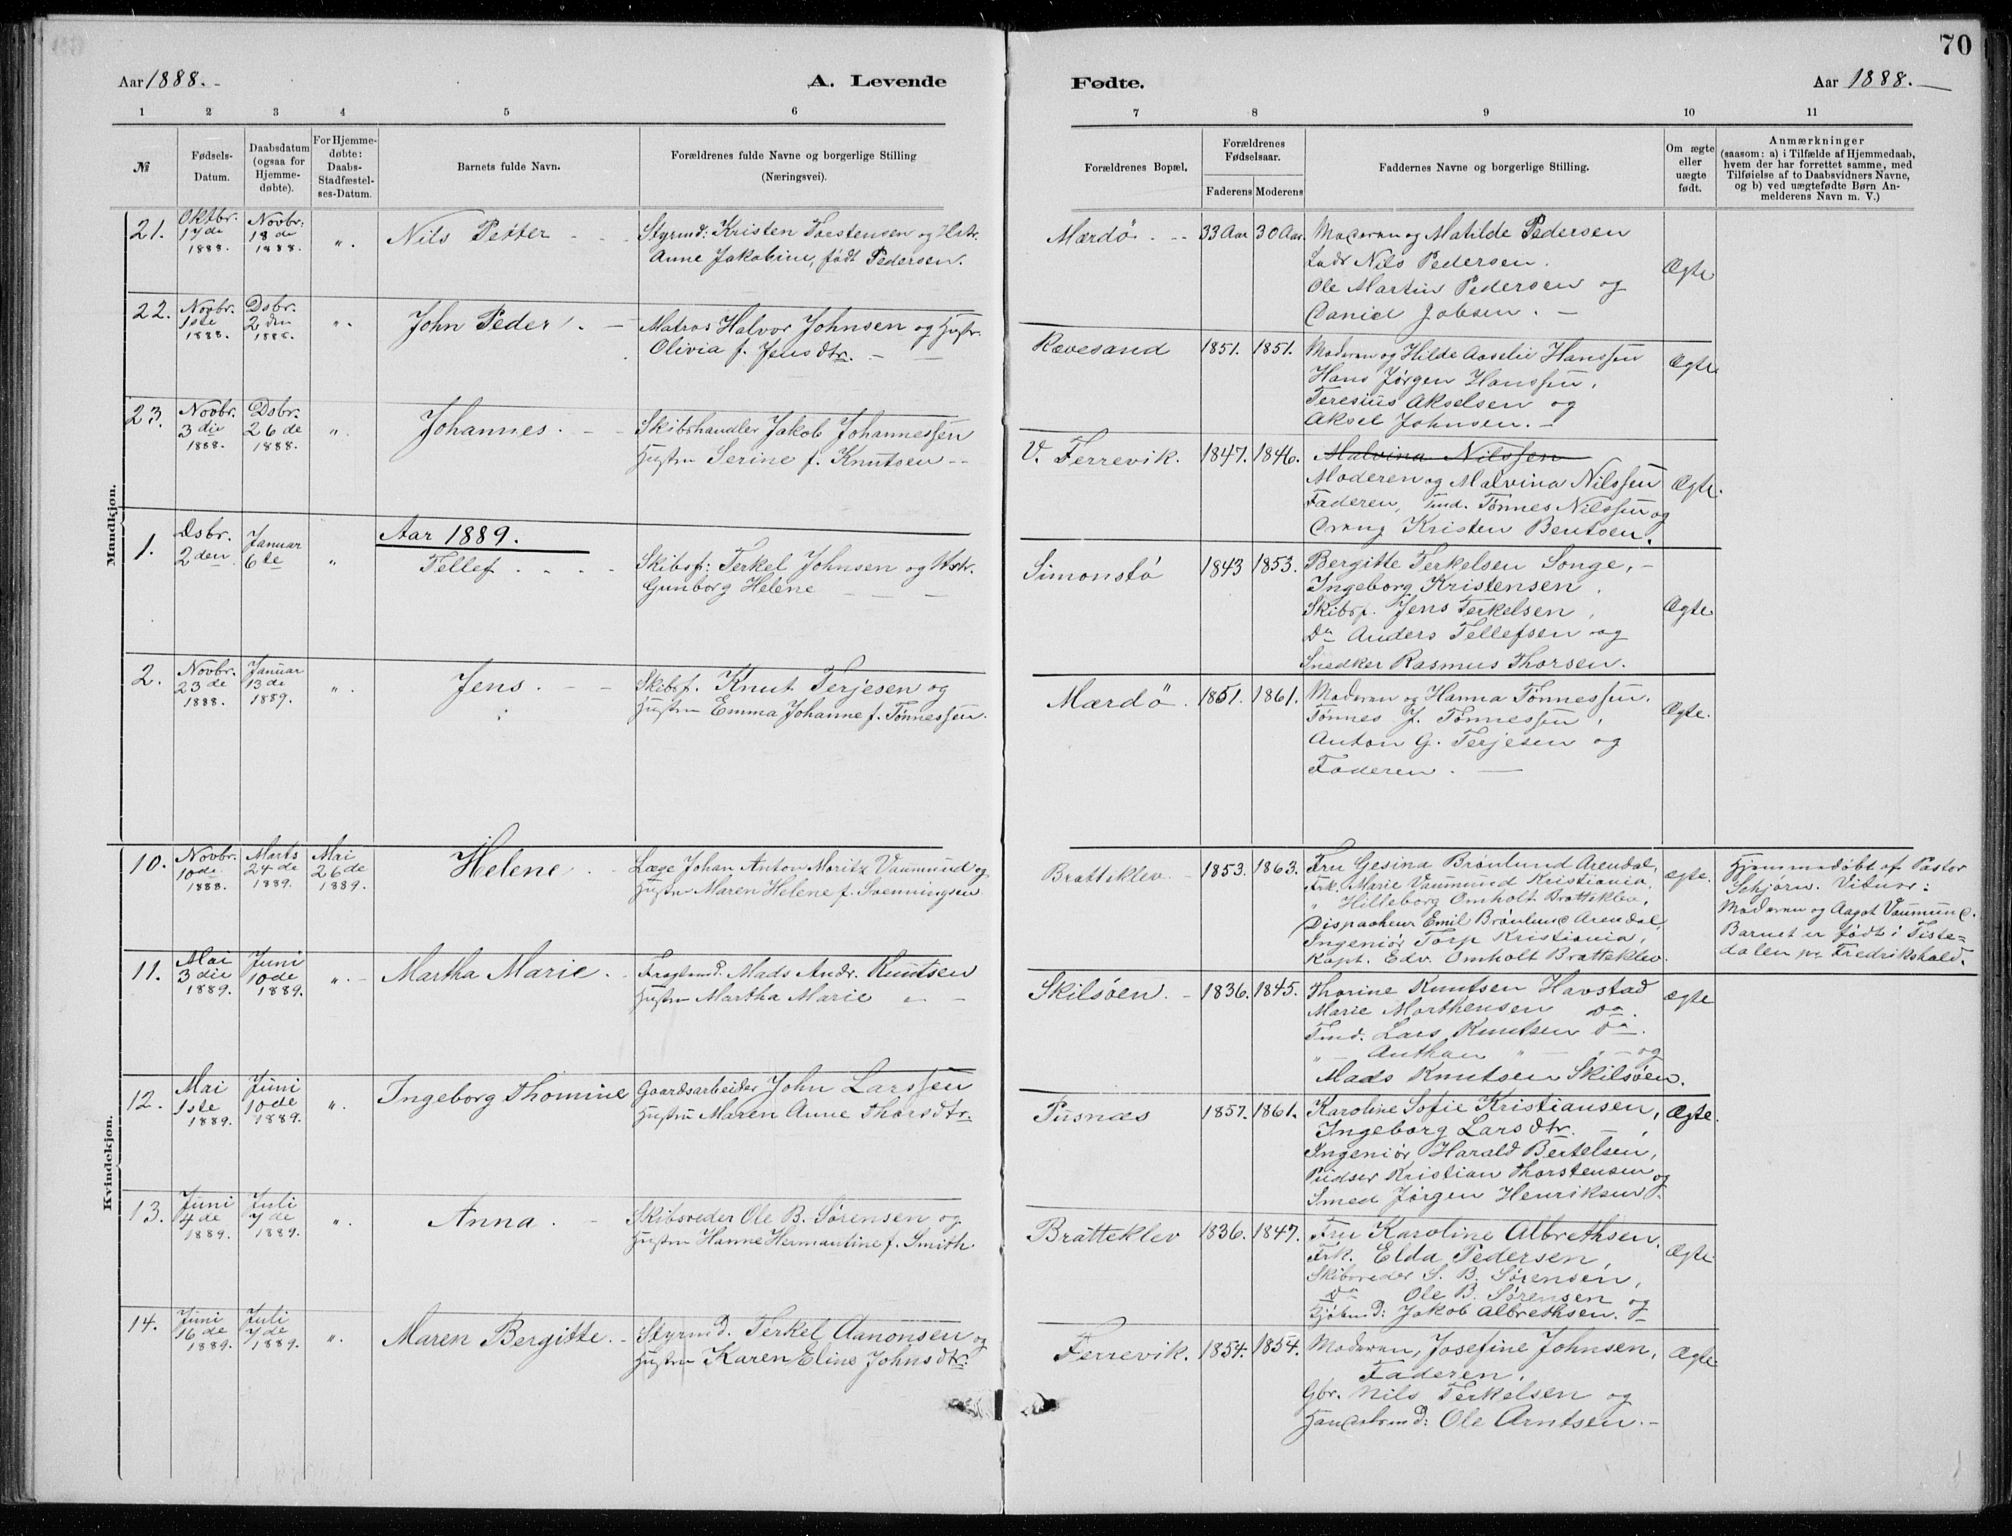 70
Aar 1888.
A. Levende
Fødte.
Aar 1888.
1 2 3 4 5 6 7 8 9 10 11
№
Fødsels-
Datum.
Daabsdatum
(ogsaa for
Hjemme-
døbte).
For Hjemme-
døbte:
Daabs-
Stadfæstel-
ses-Datum.
Barnets fulde Navn.
Forældrenes fulde Navne og borgerlige Stilling
(Næringsvei).
Forældrenes Bopæl.
Forældrenes
Fødselsaar.
Faderens Moderens
Faddernes Navne og borgerlige Stilling.
Om ægte
eller
uægte
født.
Anmærkninger
(saasom: a) i Tilfælde af Hjemmedaab,
hvem der har forrettet samme, med
Tilføielse af to Daabsvidners Navne,
og b) ved uægtefødte Børn An-
melderens Navn m. V.)
Mandkjøn.
21.
Oktbr.
17de
1888.
Novbr.
18de
1888.
"
Nils Petter
Styrmd: Kristen Torstensen og Hstr.
Anne Jakobine, født Pedersen.
Mærdö
33 Aar 30 Aar.
Moderen og Matilde Pedersen
Nils Pedersen.
Ole Martin Pedersen og
Daniel Jobsen.
Ægte
22.
Novbr.
1ste
1888.
Dsbr.
2den
1888.
"
John Peder
Matros Halvor Johnsen og Hustr.
Olivia f. Jensdtr.
Revesand
1851. 1851.
Moderen og Hilde Aaselie Hanssen
Hans Jørgen Hanssen,
Teresius Akselsen og
Aksel Johnsen.
Ægte
23.
Novbr.
3die
1888.
Dsbr.
26de
1888.
"
Johannes.
Skibshandler Jakob Johannessen
Hustru Serine f. Knutsen
V. Ferrevik.
1847. 1846.
Malvina Nilssen
Moderen og Malvina Nilssen
Faderen, Tmd. Tønnes Nilssen og
Kristen Bentsen.
Ægte.
Aar 1889.
1.
Dsbr.
2den
Januar
6te
"
Tellef
Skibsf: Terkel Johnsen og Hstr.
Gunborg Helene
Simonstö
1843 1853.
Bergitte Terkelsen Songe,
Ingeborg Kristensen
Skibsf. Jens Terkelsen,
Do Anders Tellefsen og
Snedker Rasmus Thorsen.
Ægte
2.
Novbr.
23de
1888.
Januar
13de
1889.
"
Jens.
Skibsf. Knut Terjesen og
Hustru Emma Johanne f. Tønnessen.
Mærdö
1851. 1861.
Moderen og Hanna Tønnessen.
Tønnes J. Tønnessen,
Anton G. Terjesen og
Faderen.
Ægte.
Kvindekjøn.
10.
Novbr.
10de
1888.
Marts
24de
1889.
Mai
26de
1889.
Helene.
Læge Johan Anton Moritz Vaumund og
Hustru Maren Helene f. Svenningsen
Bratteklev
1853. 1863.
Fru Gesina Brönlund Arendal,
Frk. Marie Vaumund Kristiania,
" Hilleborg Omholt Bratteklev,
Dispacheur Emil Brönlund Arendal,
Ingeniör Torp Kristiania,
Kapt. Edv. Omholt Bratteklev.
ægte.
Hjemmedøbt af Pastor
Schjørn. Vitner:
Moderen og Aagot Vaumund.
Barnet er født i Tiste-
dalen pr Fredrikshald.
11.
Mai
3die
1889.
Juni
10de
1889.
"
Martha Marie.
Fragtmd. Mads Andr. Knutsen
Hustru Martha Marie
Skilsöen.
1836. 1845.
Thorine Knutsen Havstad
Marie Marthensen Do.
Tmd. Lars Knutsen Do.
" Anthan " og
Mads Knutsen Skilsöen.
ægte
12.
Mai
1ste
1889.
Juni
10de
1889.
"
Ingeborg Thomine
Gaardsarbeider John Larssen
Hustru Maren Anne Thorsdtr.
Pusnæs
1857. 1861.
Karoline Sofie Kristiansen,
Ingeborg Larsdtr.
Ingeniör Harald Bertelsen,
Pudser Kristian Thorstensen og
Smed Jörgen Henriksen.
Ægte.
13.
Juni
4de
1889.
Juli
7de
1889.
"
Anna.
Skibsreder Ole B. Sörensen og
Hustru Hanne Hermantine f. Smith.
Bratteklev
1836. 1847.
Fru Karoline Albrethsen.
Frk. Elda Pedersen,
Skibsreder S. B. Sörensen,
Do Ole B. Sörensen og
Kjöbmd: Jakob Albrethsen.
Ægte.
14.
Juni
16de
1889.
Juli
7de
1889.
"
Maren Bergitte.
Styrmd. Terkel Aanonsen og
Hustru Karen Eline Johnsdtr.
Ferrevik.
1854. 1854.
Moderen, Josefine Johnsen,
Faderen,
Gbr. Nils Terkelsen og
Ole Arntsen.
Ægte